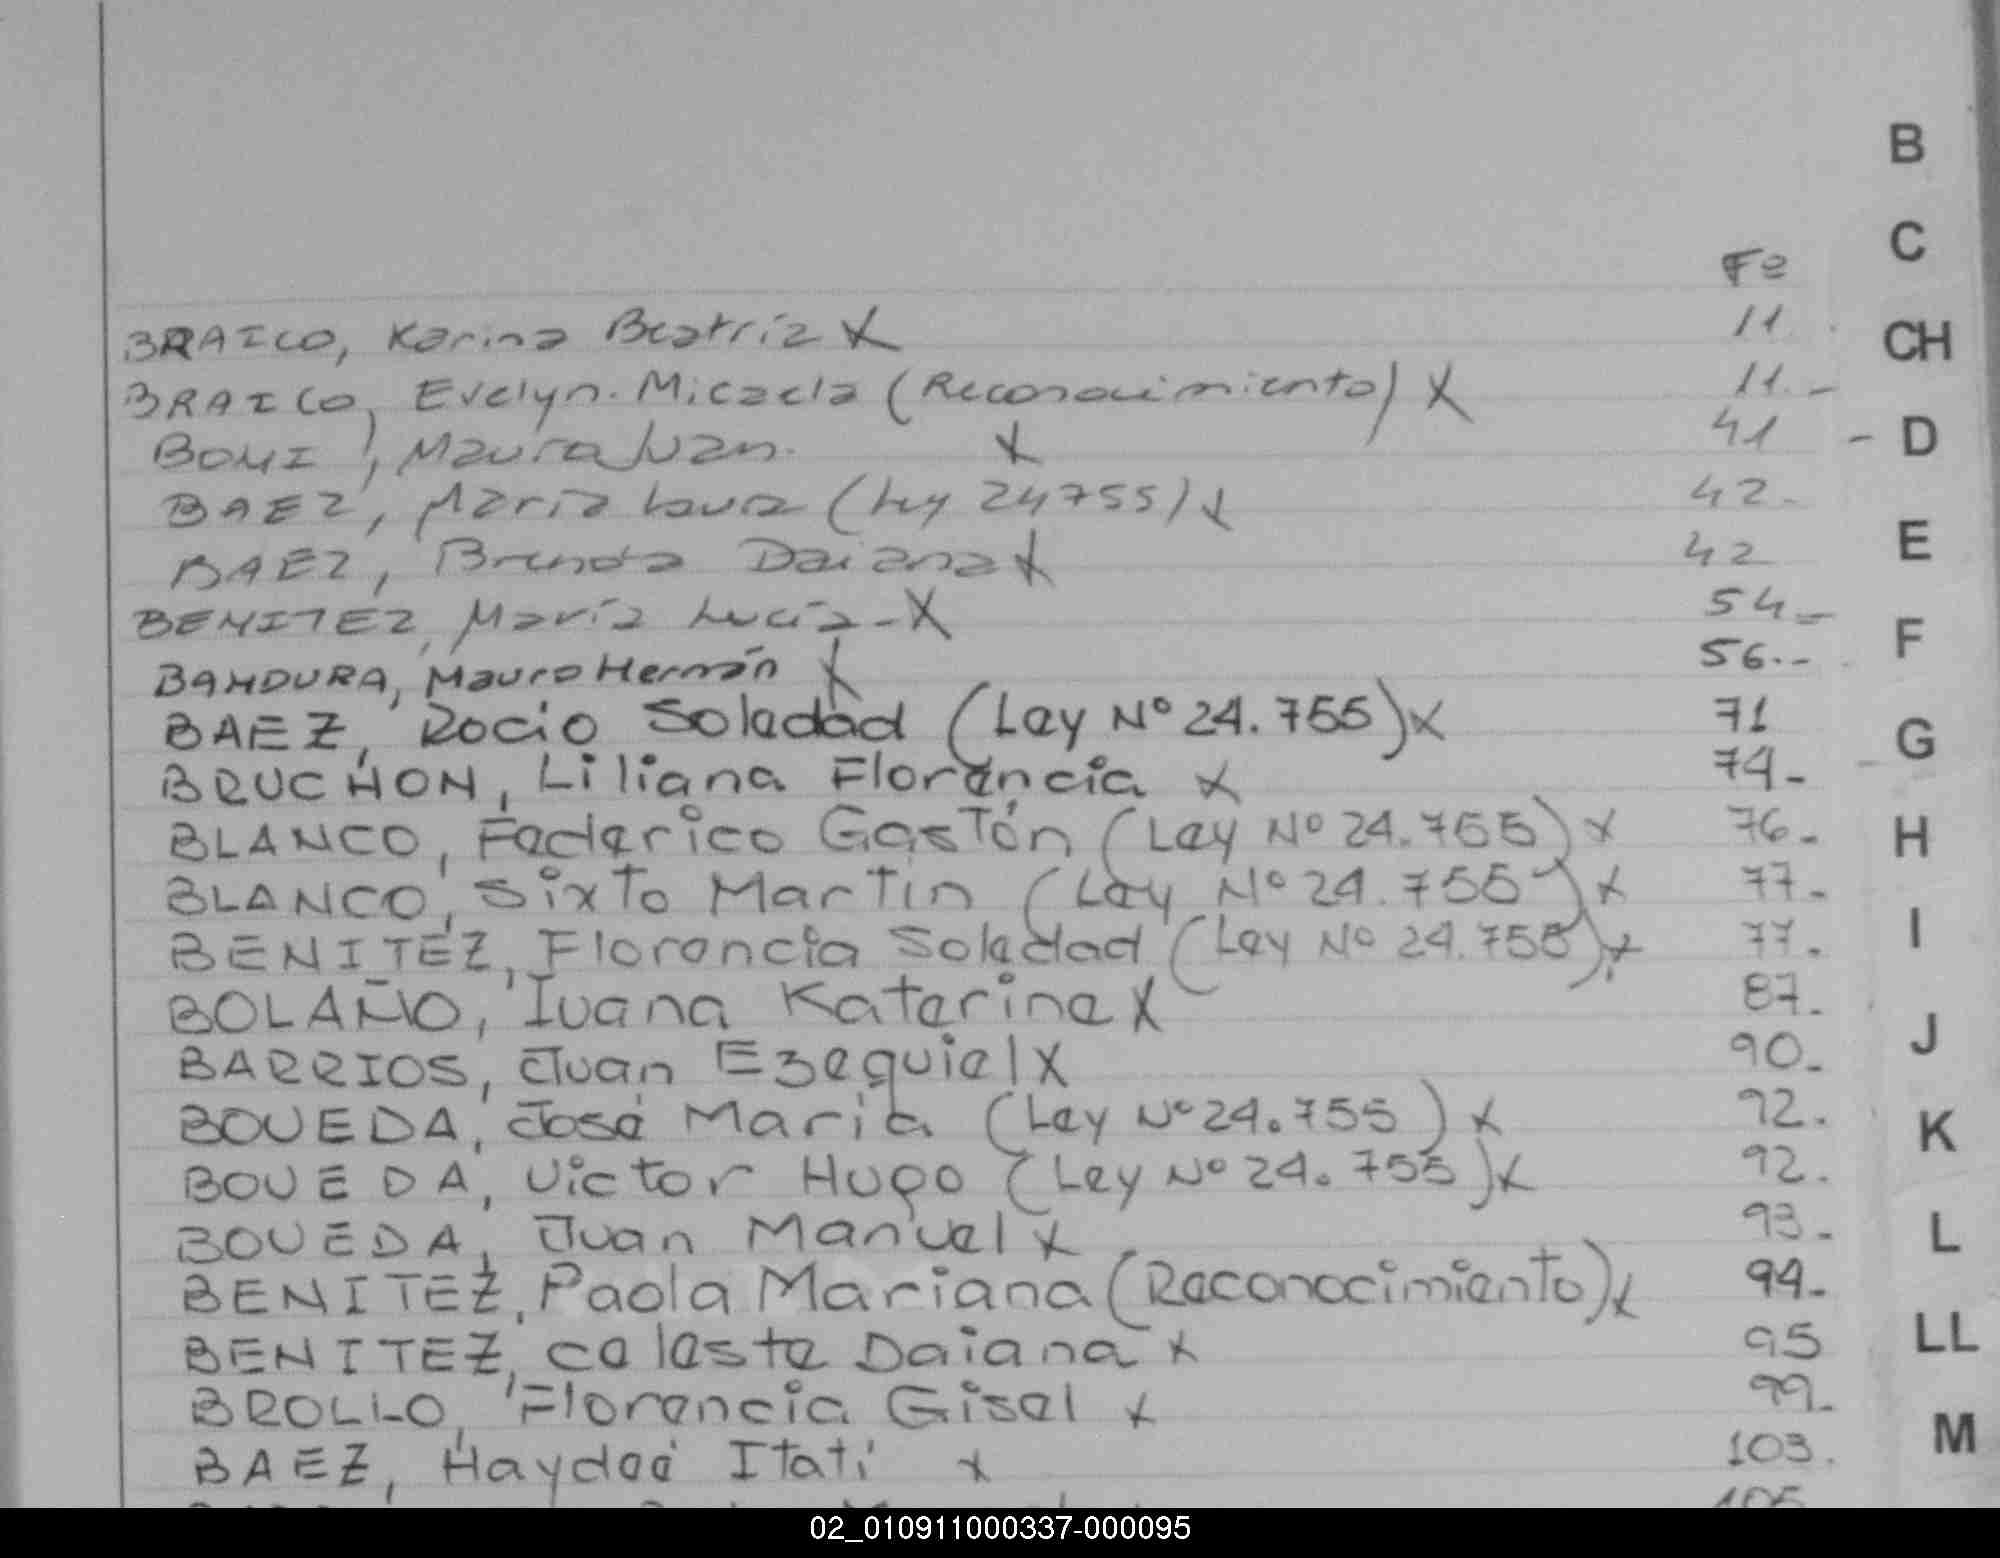 B
C
Fo
BRAICO, Karina Beatriz X 11
CH
BRAICO, Evelyn Micaela (Reconocimiento) X 11.-
BOMI, Maura Juan. X 41 - D
BAEZ, María Laura (Ley 24755) X 42.-
BAEZ, Brenda Daiana X 42
E
BENITEZ, María Lucía - X 54_
BANDURA, Mauro Hernán X 56.-
F
BAEZ, Rocio Soledad (Ley Nº 24.755) X 71
G
BRUCHON, Liliana Florencia X 74-
BLANCO, Federico Gastón (Ley Nº 24.755) X 76-
H
BLANCO, Sixto Martin (Ley Nº 24.755) X 77-
BENITEZ, Florencia Soledad (Ley Nº 24.755) X 77.
I
BOLAÑO, Ivana Katerine X 87-
BARRIOS, Juan Ezequiel X 90-
J
BOVEDA, José Maria (Ley Nº 24.755) X 92.
K
BOVEDA, Victor Hugo (Ley Nº 24.755) X 92.
BOVEDA, Juan Manuel X 93-
L
BENITEZ, Paola Mariana (Reconocimiento) X 94-
BENITEZ, Celeste Daiana X 95
LL
BROLLO, Florencia Gisel X 99-
BAEZ, Haydeé Itatí X 103.
M
02_010911000337-000095